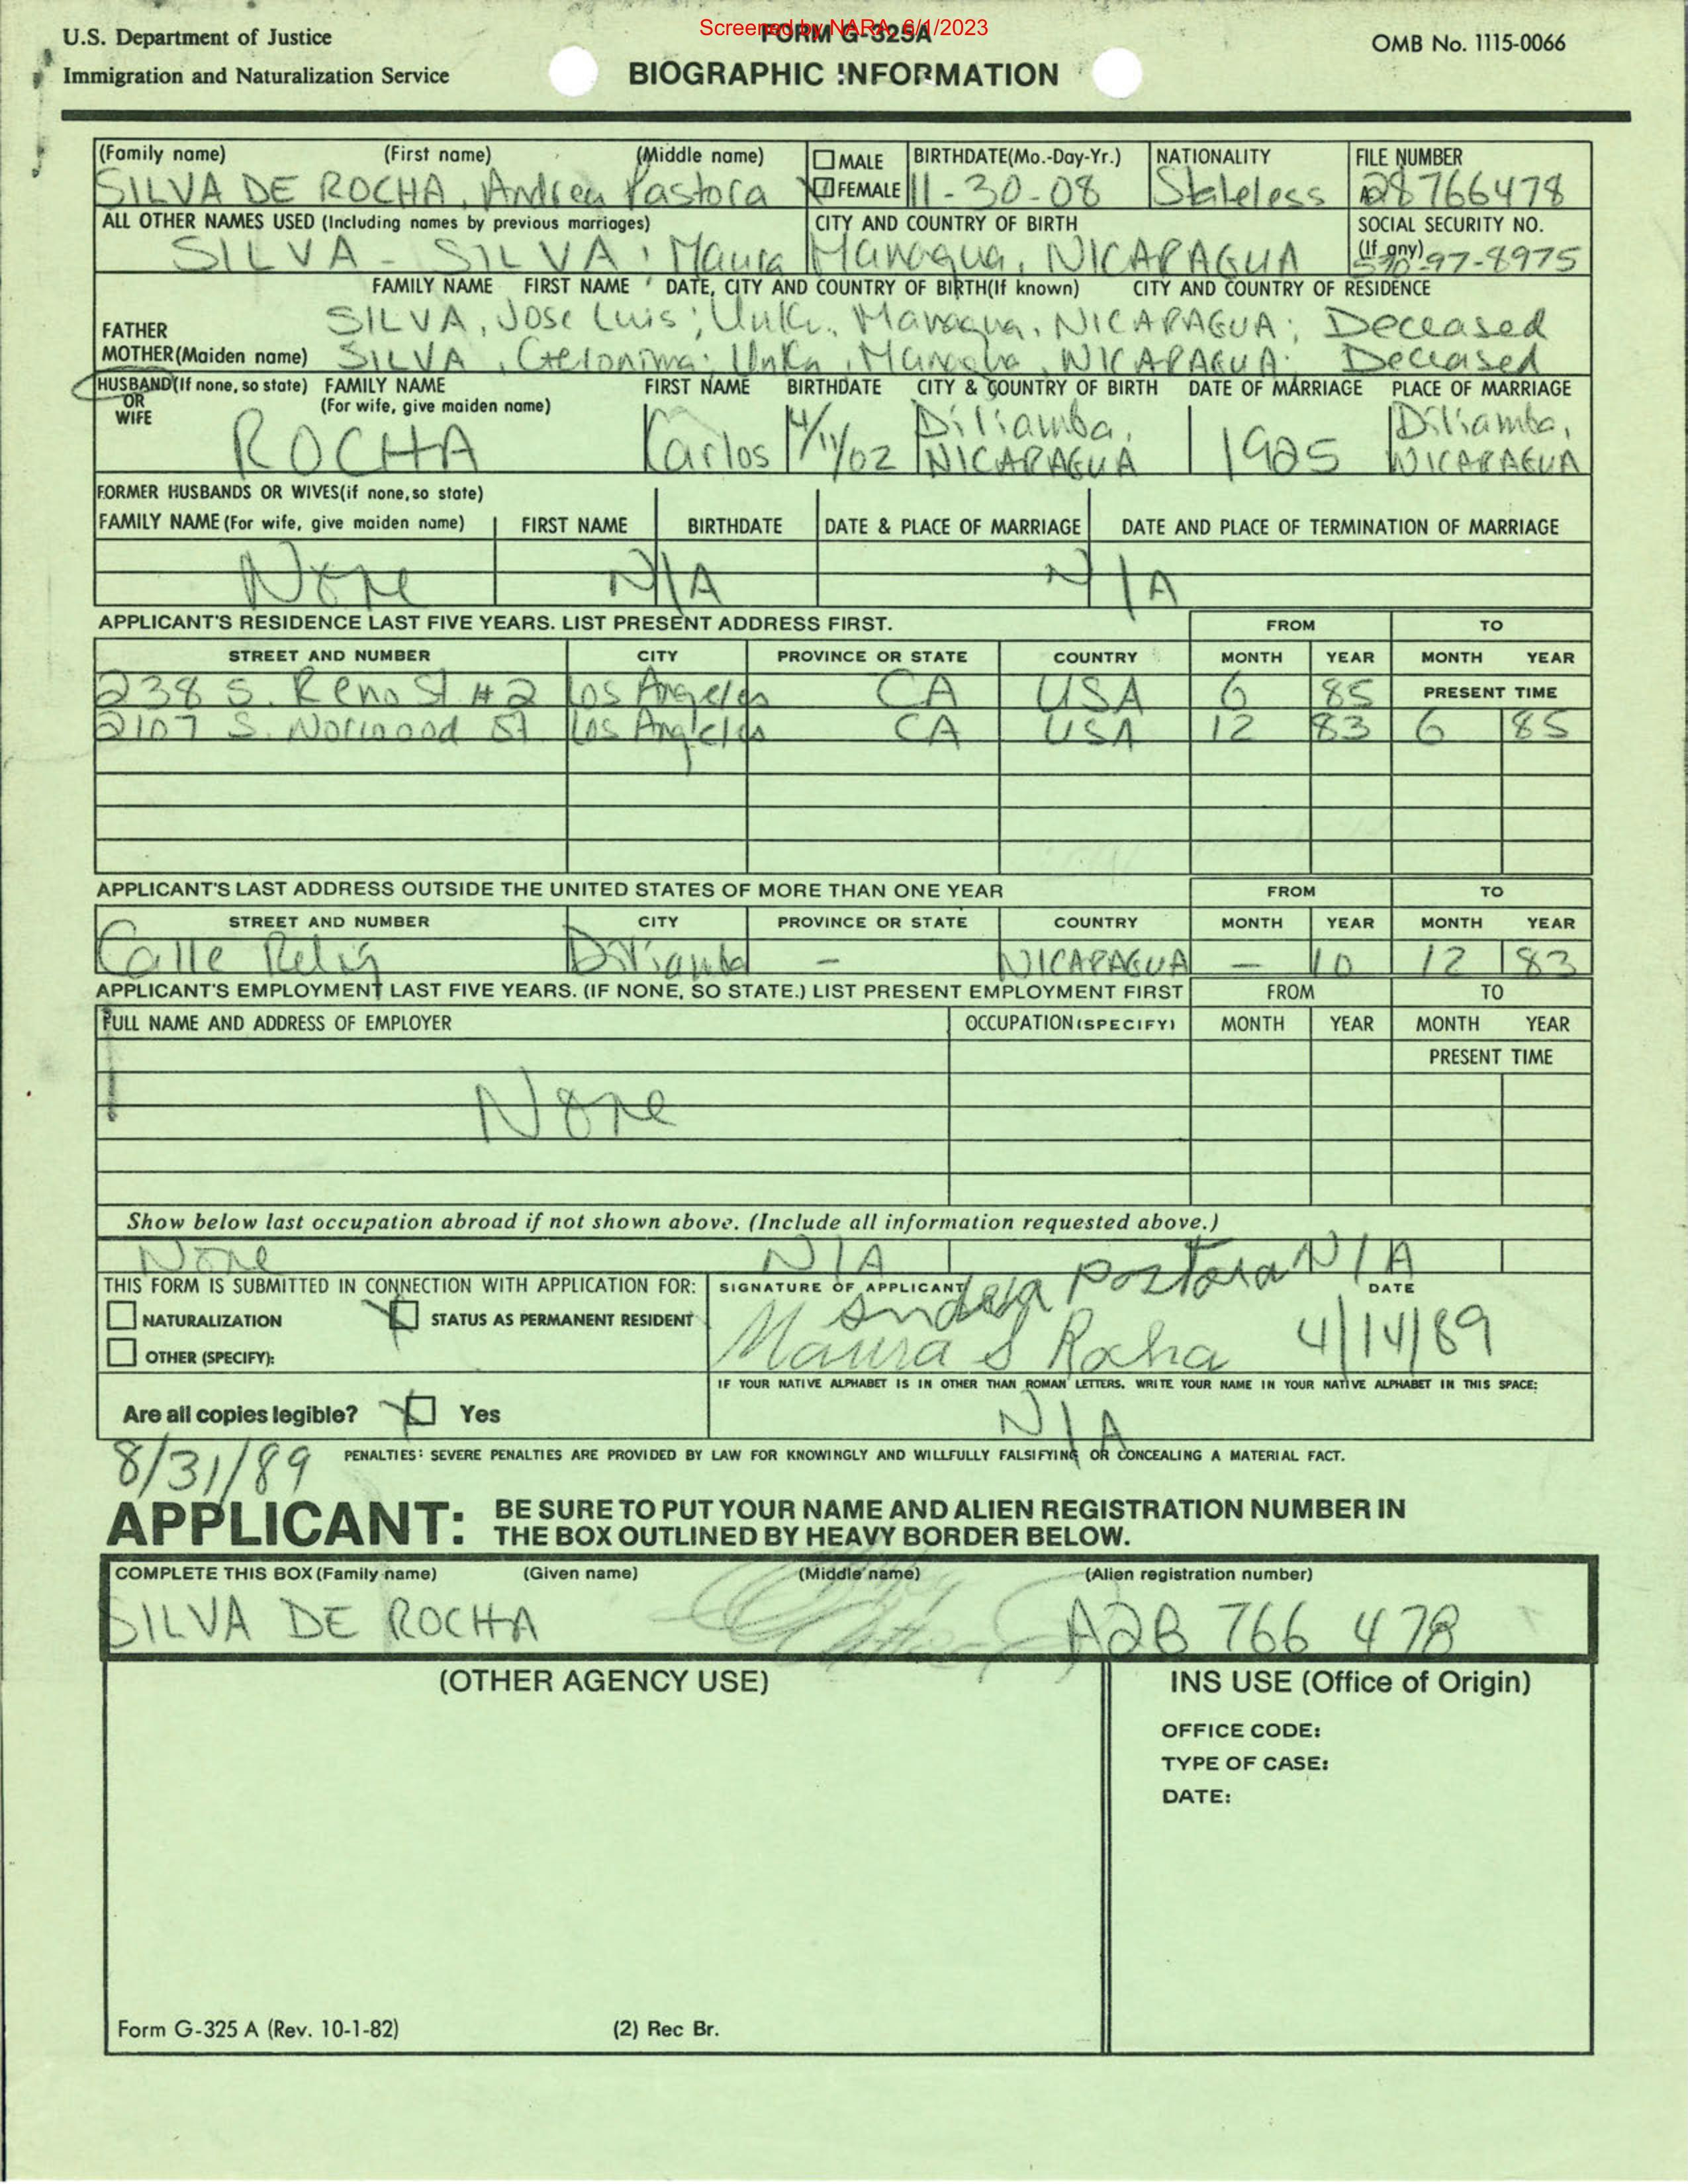 Screened by NARA, 6/1/2023
U.S. Department of Justice
Immigration and Naturalization Service
FORM G-325A
BIOGRAPHIC INFORMATION
OMB No. 1115-0066
(Family name) (First name) (Middle name) MALE FEMALE BIRTHDATE(Mo.-Day-Yr.) NATIONALITY FILE NUMBER
SILVA DE ROCHA, Andrea Pastora 11-30-08 Stateless A28766478
ALL OTHER NAMES USED (Including names by previous marriages) CITY AND COUNTRY OF BIRTH SOCIAL SECURITY NO. (If any)
SILVA - SILVA, Maura Managua, NICARAGUA 97-8975
FAMILY NAME FIRST NAME DATE, CITY AND COUNTRY OF BIRTH(If known) CITY AND COUNTRY OF RESIDENCE
FATHER SILVA, Jose Luis; Unk., Managua, NICARAGUA; Deceased
MOTHER(Maiden name) SILVA, Geronima; Unkn, Managua, NICARAGUA; Deceased
HUSBAND(If none, so state) OR WIFE FAMILY NAME (For wife, give maiden name) FIRST NAME BIRTHDATE CITY & COUNTRY OF BIRTH DATE OF MARRIAGE PLACE OF MARRIAGE
ROCHA Karlos 4/11/02 Diriamba, NICARAGUA 1925 Diriamba, NICARAGUA
FORMER HUSBANDS OR WIVES(if none, so state)
FAMILY NAME (For wife, give maiden name) FIRST NAME BIRTHDATE DATE & PLACE OF MARRIAGE DATE AND PLACE OF TERMINATION OF MARRIAGE
None N/A N/A
APPLICANT'S RESIDENCE LAST FIVE YEARS. LIST PRESENT ADDRESS FIRST. FROM TO
STREET AND NUMBER CITY PROVINCE OR STATE COUNTRY MONTH YEAR MONTH YEAR
238 S. Reno St #2 Los Angeles CA USA 6 85 PRESENT TIME
2107 S. Norwood St Los Angeles CA USA 12 83 6 85
APPLICANT'S LAST ADDRESS OUTSIDE THE UNITED STATES OF MORE THAN ONE YEAR FROM TO
STREET AND NUMBER CITY PROVINCE OR STATE COUNTRY MONTH YEAR MONTH YEAR
Calle Diriamba - NICARAGUA - 10 12 83
APPLICANT'S EMPLOYMENT LAST FIVE YEARS. (IF NONE, SO STATE.) LIST PRESENT EMPLOYMENT FIRST FROM TO
FULL NAME AND ADDRESS OF EMPLOYER OCCUPATION (SPECIFY) MONTH YEAR MONTH YEAR
PRESENT TIME
None
Show below last occupation abroad if not shown above. (Include all information requested above.)
None N/A N/A
THIS FORM IS SUBMITTED IN CONNECTION WITH APPLICATION FOR: SIGNATURE OF APPLICANT DATE
NATURALIZATION STATUS AS PERMANENT RESIDENT
OTHER (SPECIFY):
Andrea Pastora
Maura S Rocha 4/14/89
IF YOUR NATIVE ALPHABET IS IN OTHER THAN ROMAN LETTERS, WRITE YOUR NAME IN YOUR NATIVE ALPHABET IN THIS SPACE:
Are all copies legible? Yes
N/A
8/31/89
PENALTIES: SEVERE PENALTIES ARE PROVIDED BY LAW FOR KNOWINGLY AND WILLFULLY FALSIFYING OR CONCEALING A MATERIAL FACT.
APPLICANT: BE SURE TO PUT YOUR NAME AND ALIEN REGISTRATION NUMBER IN
THE BOX OUTLINED BY HEAVY BORDER BELOW.
COMPLETE THIS BOX (Family name) (Given name) (Middle name) (Alien registration number)
SILVA DE ROCHA A28 766 478
(OTHER AGENCY USE) INS USE (Office of Origin)
OFFICE CODE:
TYPE OF CASE:
DATE:
Form G-325 A (Rev. 10-1-82) (2) Rec Br.